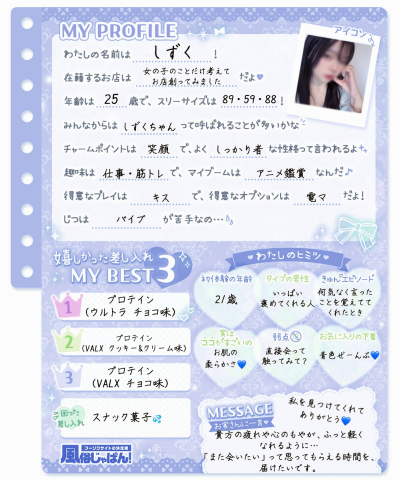 MY PROFILE
アイコン♪
わたしの名前は しずく !
在籍するお店は 女の子のことだけ考えて お店創ってみました だよ
年齢は 25 歳で、スリーサイズは 89・59・88 !
みんなからは しずくちゃん って呼ばれることが多いかな
チャームポイントは 笑顔 で、よく しっかり者 な性格って言われるよ
趣味は 仕事・筋トレ で、マイブームは アニメ鑑賞 なんだ♪
得意なプレイは キス で、得意なオプションは 電マ だよ!
じつは バイブ が苦手なの…💦
嬉しかった差し入れ
MY BEST 3
1 プロテイン
(ウルトラ チョコ味)
2 プロテイン
(VALX クッキー&クリーム味)
3 プロテイン
(VALX チョコ味)
困った
差し入れ
スナック菓子💦
フーゾクサイトの決定版
風俗じゃぱん!
わたしのヒミツ
初体験の年齢
21歳
タイプの男性
いっぱい
褒めてくれる人
きゅんエピソード
何気なく言った
ことを覚えてて
くれたとき
実は
ココがすごいの
お肌の
柔らかさ💙
弱点
直接会って
触ってみて?
お気に入りの下着
青色ぜーんぶ💙
MESSAGE
お客さんに一言
私を見つけてくれて
ありがとう💙
貴方の疲れや心のもやが、ふっと軽く
なれるように…
「また会いたい」って思ってもらえる時間を、
届けたいです。